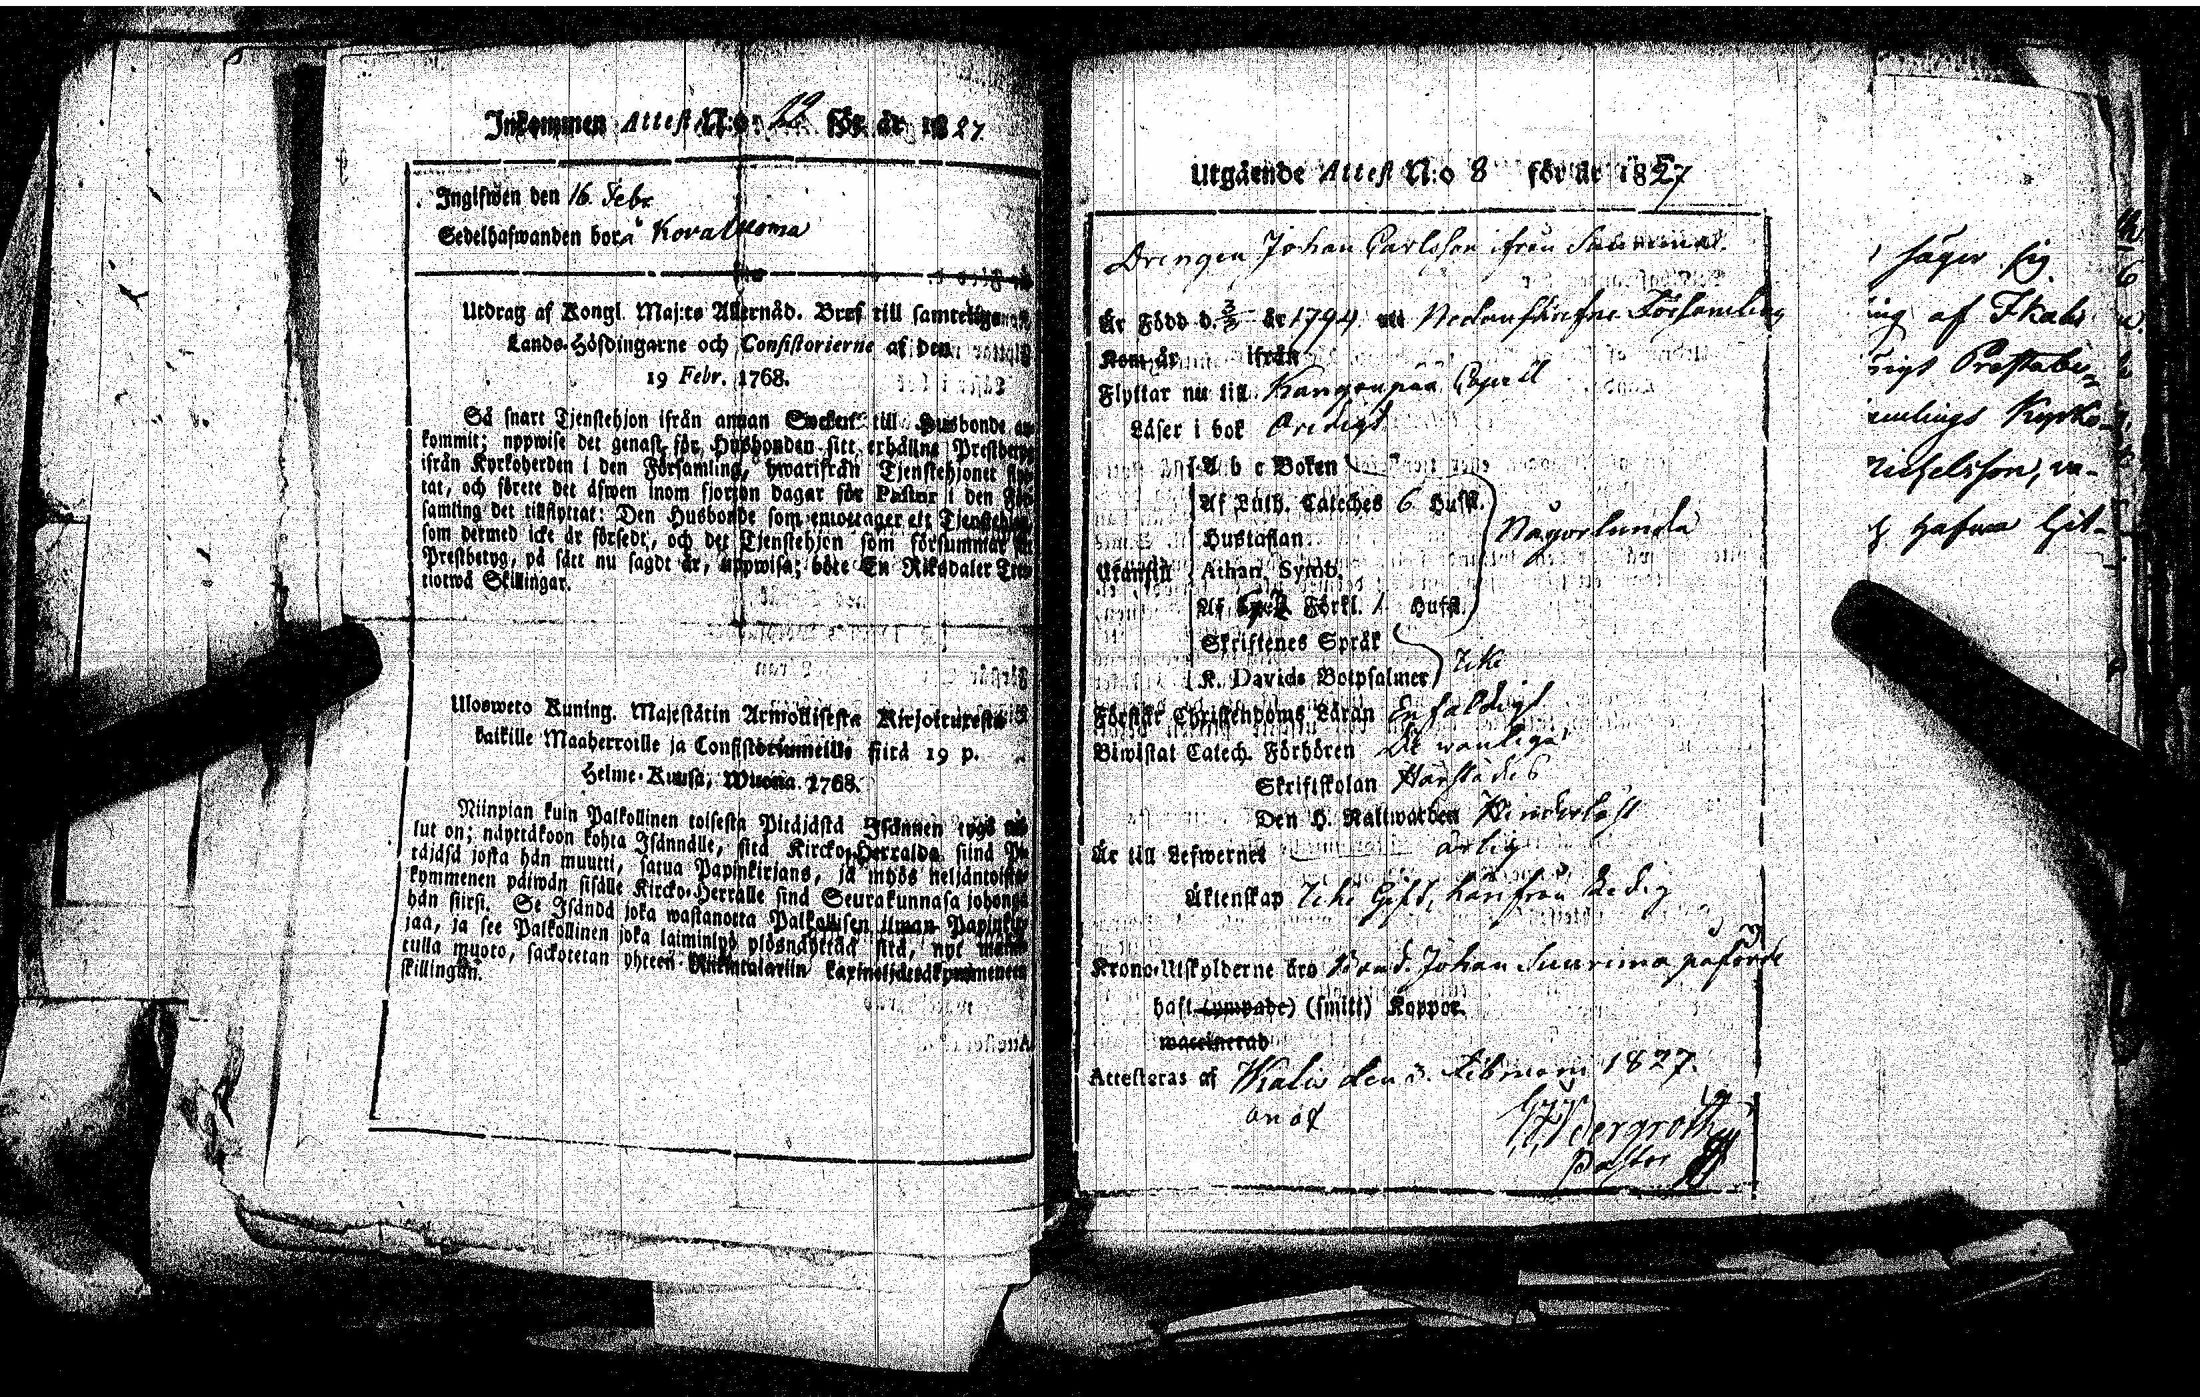 Inkommen Attest N:o: 22 för år 1827
Ingifwen den 16 Febr.
Sedelhafwanden bor å Kovaluoma
Utdrag af Kongl. Maj:ts Allernåd. Bref till samtelige
Lands-Höfdingarne och Consistorierne af den
19 Febr. 1768.
Så snart Tjenstehjon ifrån annan Sockn till Husbonde an-
kommit; uppwise det genast för Husbonden sitt erhållne Prestbetyg
ifrån Kyrkoherden i den Församling, hwarifrån Tjenstehjonet flyt-
tat, och förete det äfwen inom fjorton dagar för Pastor i den För-
samling det tillflyttat: Den Husbonde som emottager ett Tjenstehjon,
som dermed icke är försedt, och det Tjenstehjon som försummar sitt
Prestbetyg, på sätt nu sagdt är, uppwisa; böte En Riksdaler Tret-
tiotwå Skillingar.
Ulosweto Kuning. Majestätin Armollisesta Kirjoituxesta
kaikille Maaherroille ja Consistoriumeille siitä 19 p.
Helme-Kuusa, Wuonna 1768.
Niinpian kuin Palkollinen toisesta Pitäjästä Isännen tygö tul-
lut on; näyttäkoon kohta Isännälle, sitä Kircko-Herralda siinä Pi-
täjäsä josta hän muutti, saatua Papinkirjans, ja myös neljäntoista-
kymmenen päiwän sisälle Kircko-Herralle siinä Seurakunnasa johonga
hän siirsi. Se Isändä joka wastanotta Palkollisen ilman Papinkir-
jaa, ja see Palkollinen joka laiminlyö ylösnäyttää sitä, nyt
tulla muoto, sackotetan yhteen Riikintalariin kaxineljättäkymmeneen
skillingiin.
Utgående Attest N:o 8 för år 1827
Drengen Johan Carlsson ifrån
Är Född d. 3/3 år 1794 Nedanskrifne Församling
Kom år ifrån
Flyttar nu till Kangonpää Capell
Läser i bok Ordigt
A b c Boken
Af Luth. Cateches 6 Hufst.
Hustaflan Någorlunda
Utantill Athan. Symb.
Af Förkl. 1 Hufst.
Skriftenes Språk
K. Davids Botpsalmer Icke
Förstår Christendoms Läran Enfaldigt
Biwistat Catech. Förhören De wanliga
Skriftskolan Härstädes
Den H. Nattwarden Hinderlöst
Är till Lefwernet ärlig
Äktenskap Icke Gift, härifrån Ledig
Krono-Utskylderne äro Bond. Johan Suurima påförde
haft (ympade) (smitt) Koppor.
waccinerad
Attesteras af Ikalis den 3. Februarii 1827.
an af
Bergroth
Pastor
säger sig
ing af Ikalis
Prestabe-
amlings Kyrko-
ichelsson, wa-
hafwa Git-